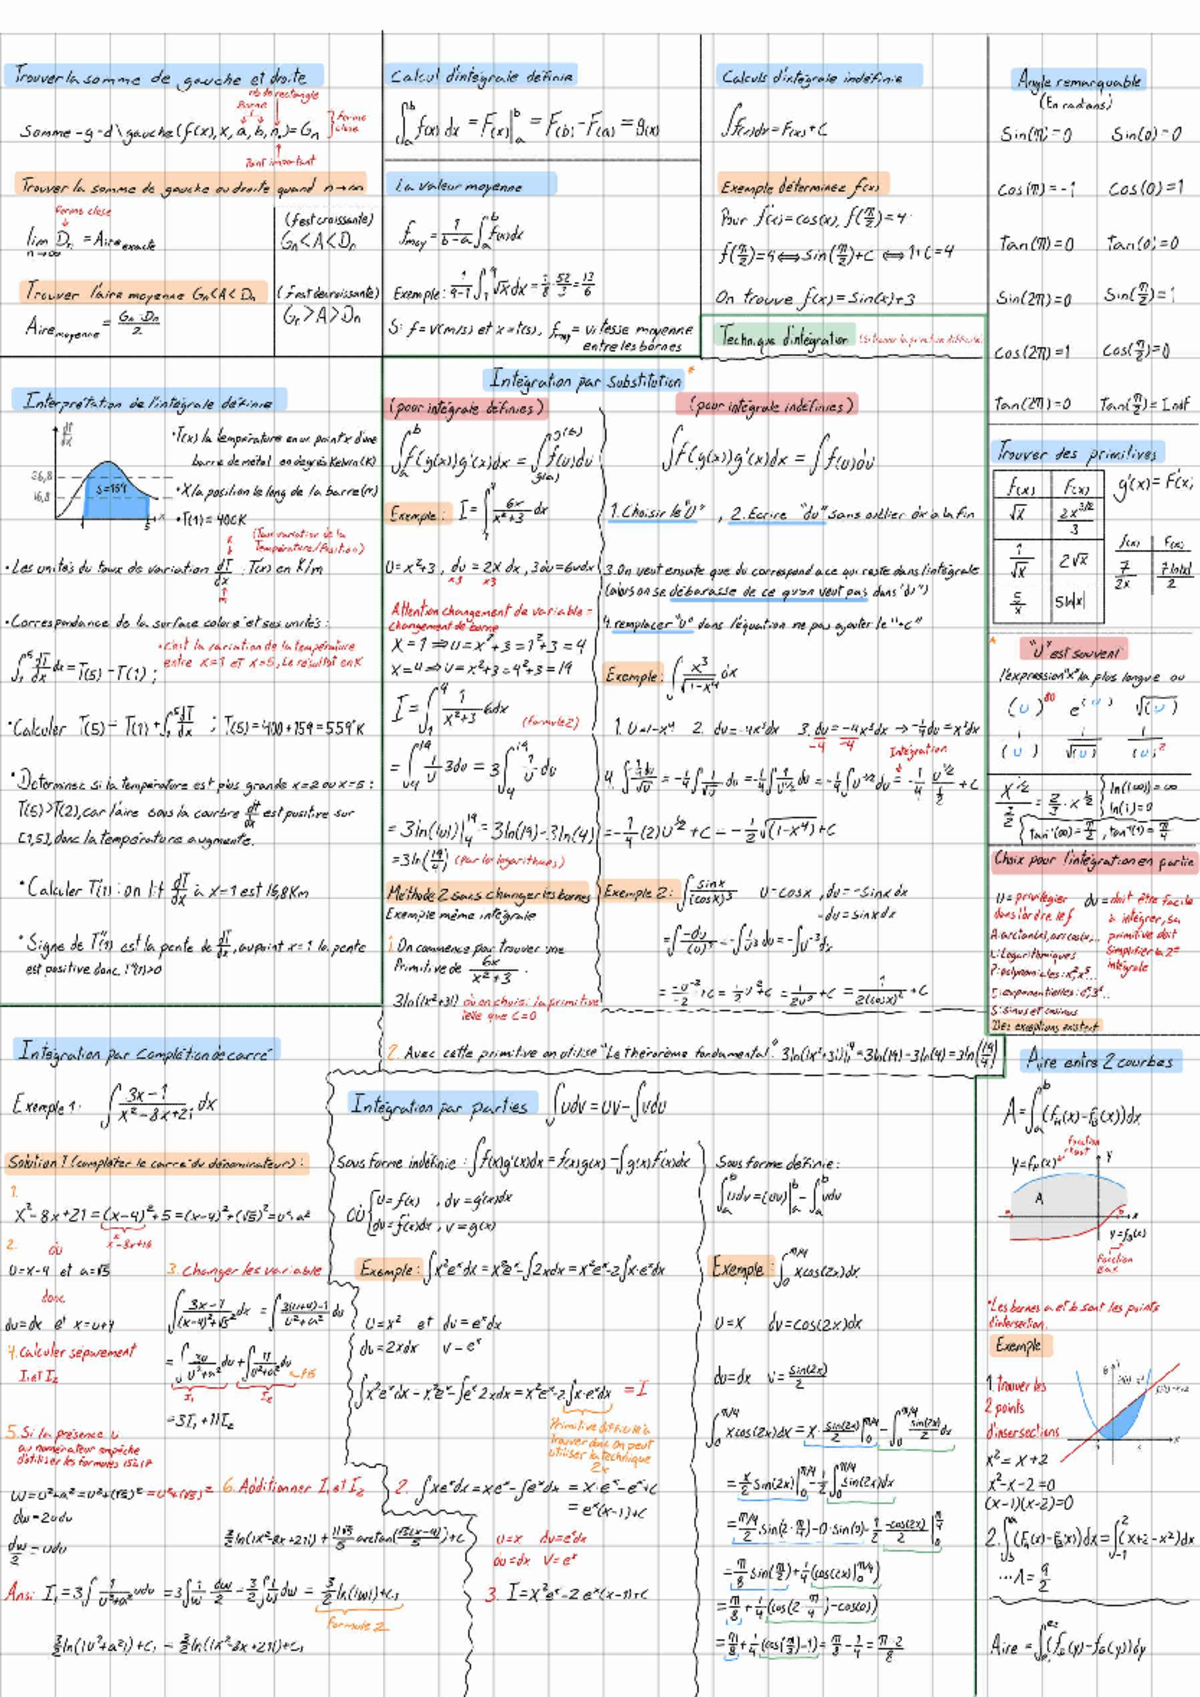 Trouver la somme de gauche et droite
nb de rectangle
Borne
Somme-g-d\gauche(f(x), x, a, b, n) = Gn
} forme close
Point important
Trouver la somme de gauche ou droite quand n→∞
forme close
lim Dn = Aire exacte
n→∞
(f est croissante)
Gn < A < Dn
Trouver l'aire moyenne Gn < A < Dn
Aire moyenne = Gn+Dn / 2
(f est decroissante)
Gn > A > Dn
Calcul d'intégrale définie
∫_a^b f(x) dx = F(x)|_a^b = F(b) - F(a) = g(x)
La valeur moyenne
f moy = 1/(b-a) ∫_a^b f(x)dx
Exemple: 1/(9-1) ∫_1^9 √x dx = 1/8 · 52/3 = 13/6
Si f = v(m/s) et x = t(s), f moy = vitesse moyenne
entre les bornes
Calculs d'intégrale indéfinie
∫f(x)dx = F(x) + C
Exemple déterminez f(x)
Pour f'(x) = cos(x), f(π/2) = 4
f(π/2) = 4 ⟺ sin(π/2) + C ⟺ 1 + C = 4
On trouve f(x) = sin(x) + 3
Technique d'intégration
Angle remarquable
(En radans)
Sin(π) = 0 Sin(0) = 0
Cos(π) = -1 Cos(0) = 1
Tan(π) = 0 Tan(0) = 0
Sin(2π) = 0 Sin(π/2) = 1
Cos(2π) = 1 Cos(π/2) = 0
Tan(2π) = 0 Tan(π/2) = Indf
Interprétation de l'intégrale définie
dT/dx
36,8
16,8
S=159
1 5
•T(x) la température en un point x d'une
barre de métal en degrés Kelvin (K)
•X la position le long de la barre (m)
•T(1) = 400K
(Taux variation de la
Température/Position)
•Les unités du taux de variation dT/dx : T(x) en K/m
•Correspondance de la surface coloré et ses unités:
∫_1^5 dT/dx dx = T(5) - T(1) ;
•c'est la variation de la température
entre x=1 et x=5, Le résultat en K
•Calculer T(5) = T(1) + ∫_1^5 dT/dx ; T(5) = 400 + 159 = 559°K
•Déterminez si la température est plus grande x=2 ou x=5 :
T(5) > T(2), car l'aire sous la courbe dT/dx est positive sur
[2,5], donc la température augmente.
•Calculer T'(1) : on lit dT/dx à x=1 est 16,8 K/m
•Signe de T''(1) est la pente de dT/dx, au point x=1 la pente
est positive donc T''(1)>0
Intégration par substitution *
(pour intégrale définies)
∫_a^b f(g(x))g'(x)dx = ∫_g(a)^g(b) f(u)du
Exemple: I = ∫_1^4 6x/(x²+3) dx
U = x²+3, du = 2x dx, 3du = 6xdx
x3 x3
Attention changement de variable =
changement de borne
X = 1 ⇒ u = x²+3 = 1²+3 = 4
x = 4 ⇒ u = x²+3 = 4²+3 = 19
I = ∫_1^4 1/(x²+3) 6xdx
(formule 2)
= ∫_4^19 1/u 3du = 3∫_4^19 1/u du
= 3ln(|u|)|_4^19 = 3ln(19) - 3ln(4)
= 3ln(19/4) (Par les logarithmes)
Méthode 2 sans changer les bornes
Exemple même intégrale
1. On commence par trouver une
Primitive de 6x/(x²+3).
3ln(|x²+3|) où on choisi la primitive
telle que C=0
2. Avec cette primitive on utilise "Le théorème fondamental". 3ln(|x²+3|)|_1^4 = 3ln(19) - 3ln(4) = 3ln(19/4)
(pour intégrale indéfinies)
∫f(g(x))g'(x)dx = ∫f(u)du
1. Choisir le "U", 2. Ecrire "du" sans oublier dx a la fin
3. On veut ensuite que du correspond a ce qui reste dans l'intégrale
(alors on se débarasse de ce qu'on veut pas dans "du")
4. remplacer "U" dans l'équation ne pas ajouter le "+C"
Exemple: ∫ x³/√(1-x⁴) dx
1. U = 1-x⁴ 2. du = -4x³dx 3. du/-4 = -4x³dx/-4 → -1/4 du = x³dx
Intégration
4. ∫ (-1/4 du)/√u = -1/4 ∫ 1/√u du = -1/4 ∫ 1/u^(1/2) du = -1/4 ∫ u^(-1/2) du = -1/4 · u^(1/2)/(1/2) + C
= -1/4 (2) u^(1/2) + C = -1/2 √(1-x⁴) + C
Exemple 2: ∫ sinx/(cosx)³ U = cosx, du = -sinx dx
-du = sinx dx
= ∫ -du/(u)³ = -∫ 1/u³ du = -∫ u^-3 dx
= -u^-2/-2 + C = 1/2 u^-2 + C = 1/2u² + C = 1/2(cosx)² + C
Trouver des primitives
f(x) F(x) g'(x) = F(x)
√x 2x^(3/2)/3
1/√x 2√x
5/x 5ln|x|
f(x) F(x)
7/2x 7ln|x|/2
* "U" est souvent
l'expression "x" la plus longue ou
(u)^80 e^(u) √(u)
1/(u) 1/√(u) 1/(u)²
x^(3/2)/(3/2) = 2/3 · x^(3/2)
ln(|∞|) = ∞
ln(1) = 0
tan⁻¹(∞) = π/2, tan⁻¹(1) = π/4
Choix pour l'intégration en partie
U = privilégier
dans l'ordre
A: arctan(x), arccos(x)...
L: Logarithmiques
P: polynomiales: x², x⁵...
E: exponentielles: eˣ, 3ˣ...
S: sinus et cosinus
Des exceptions existent
du = doit être facile
à intégrer, sa
primitive doit
simplifier la 2e
intégrale
Intégration par complétion de carré
Exemple 1: ∫ (3x-1)/(x²-8x+21) dx
Solution 1 (compléter le carré du dénominateur):
1.
x²-8x+21 = (x-4)²+5 = (x-4)²+(√5)² = u²+a²
x²-8x+16
2. où
U = x-4 et a = √5
donc
du = dx et x = u+4
3. Changer les variable
∫ (3x-1)/((x-4)²+√5²) dx = ∫ (3(u+4)-1)/(u²+a²) du
4. Calculer séparement
I1 et I2
= ∫ 3u/(u²+a²) du + ∫ 11/(u²+a²) du
I1 I2
= 3I1 + 11I2
5. Si la présence u
au numérateur empêche
d'utiliser les formules 15 à 17
W = u²+a² = u²+(√5)² = u²+(√5)²
dw = 2udu
dw/2 = udu
6. Additionner I1 et I2
3/2 ln(|x²-8x+21|) + 11√5/5 arctan(√5(x-4)/5) + C
Ansi I1 = 3∫ 1/(u²+a²) udu = 3∫ 1/w dw/2 = 3/2 ∫ 1/w dw = 3/2 ln(|w|) + C1
Formule 2
3/2 ln(|u²+a²|) + C1 = 3/2 ln(|x²-8x+21|) + C1
Intégration par parties ∫udv = uv - ∫vdu
Sous forme indéfinie: ∫f(x)g'(x)dx = f(x)g(x) - ∫g(x)f'(x)dx
où { u = f(x), dv = g'(x)dx
du = f'(x)dx, v = g(x)
Exemple: ∫x²eˣdx = x²eˣ - ∫2xdx = x²eˣ - 2∫x·eˣdx
U = x² et dv = eˣdx
du = 2xdx v = eˣ
∫x²eˣdx = x²eˣ - ∫eˣ2xdx = x²eˣ - 2∫x·eˣdx = I
Primitive difficile à
trouver donc on peut
utiliser la technique
2x
2. ∫xeˣdx = xeˣ - ∫eˣdx = x·eˣ - eˣ + C
= eˣ(x-1) + C
u = x dv = eˣdx
du = dx v = eˣ
3. I = x²eˣ - 2eˣ(x-1) + C
Sous forme définie:
∫_a^b udv = (uv)|_a^b - ∫_a^b vdu
Exemple: ∫_0^(π/4) xcos(2x)dx
U = x dv = cos(2x)dx
du = dx v = sin(2x)/2
∫_0^(π/4) xcos(2x)dx = x·sin(2x)/2|_0^(π/4) - ∫_0^(π/4) sin(2x)/2 dx
= x/2 sin(2x)|_0^(π/4) - 1/2 ∫_0^(π/4) sin(2x)dx
= (π/4)/2 sin(2·π/4) - 0·sin(0) - 1/2 · -cos(2x)/2|_0^(π/4)
= π/8 sin(π/2) + 1/4 (cos(2x)|_0^(π/4))
= π/8 + 1/4 (cos(2·π/4) - cos(0))
= π/8 + 1/4 (cos(π/2) - 1) = π/8 - 1/4 = π-2/8
Aire entre 2 courbes
A = ∫_a^b (fH(x) - fB(x))dx
fonction
haut
y = fH(x) y
A
x
y = fB(x)
Fonction
Bas
*Les bornes a et b sont les points
d'intersection.
Exemple
1. trouver les
2 points
d'insersections
x² = x+2
x²-x-2 = 0
(x-1)(x-2) = 0
2. ∫(fH(x) - fB(x))dx = ∫_-1^2 (x+2-x²)dx
... A = 9/2
Aire = ∫(fD(y) - fG(y))dy